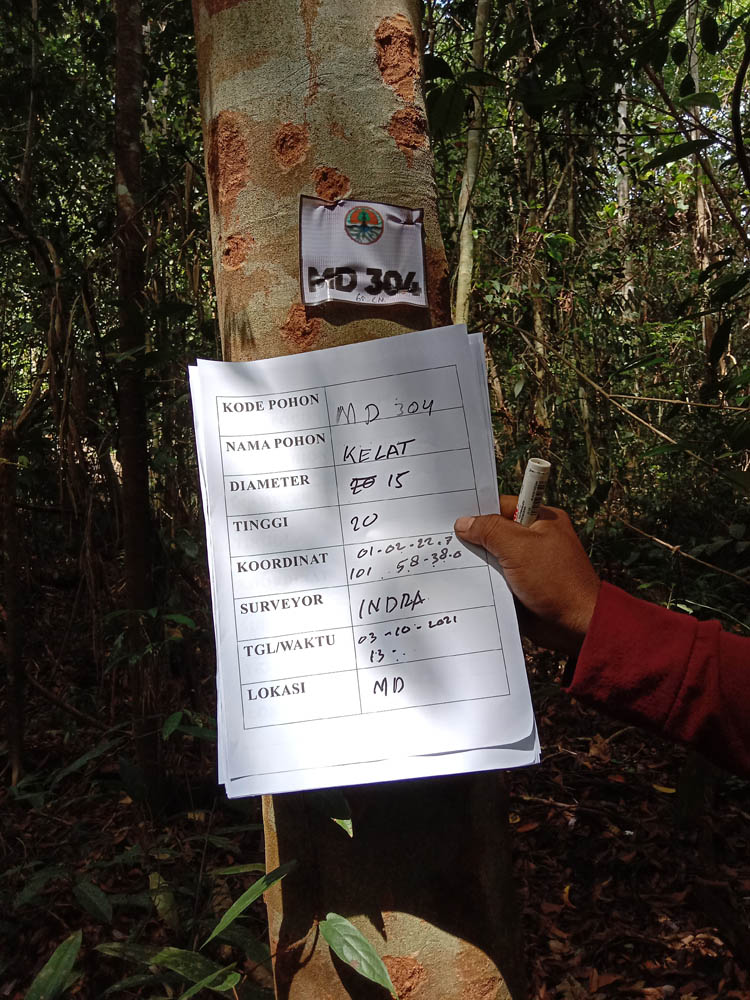 MD 304
KODE POHON MD 304
NAMA POHON KELAT
DIAMETER 20 15
TINGGI 20
KOORDINAT 01-02-22.7
101 58-38.0
SURVEYOR INDRA
TGL/WAKTU 03-10-2021
13-.
LOKASI MD